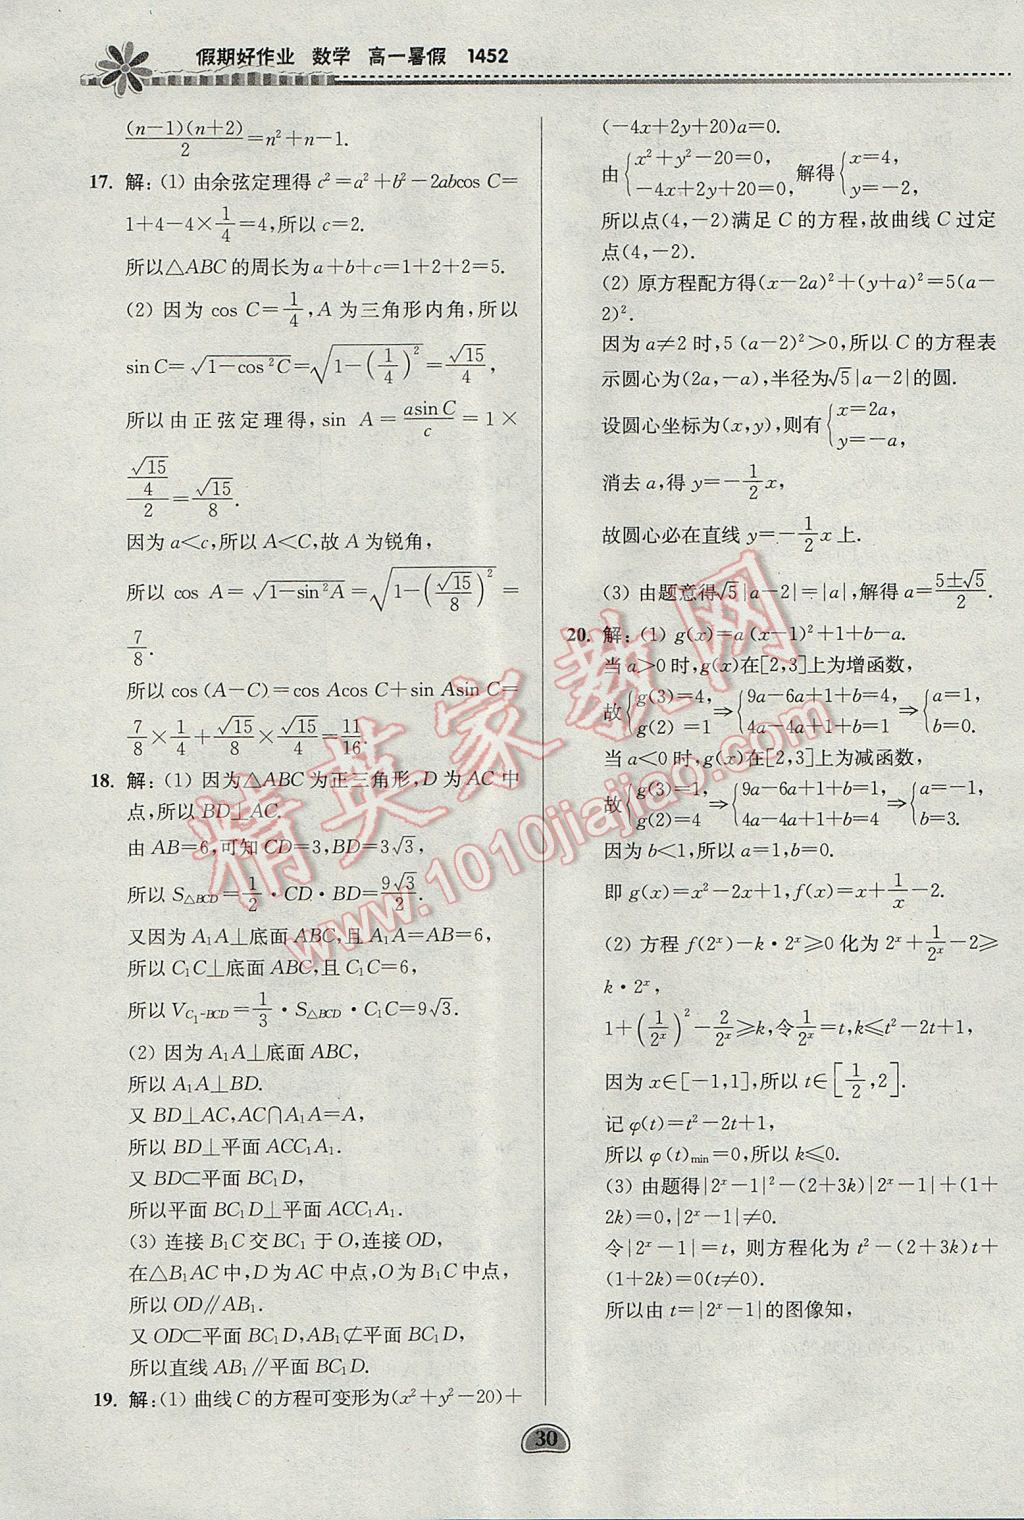 假期好作业 数学 高一暑假 1452
(n-1)(n+2)/2=n²+n-1.
17. 解:(1) 由余弦定理得 c²=a²+b²-2abcos C=
1+4-4×1/4=4,所以 c=2.
所以△ABC 的周长为 a+b+c=1+2+2=5.
(2) 因为 cos C=1/4,A 为三角形内角,所以
sin C=√(1-cos²C)=√(1-(1/4)²)=√15/4,
所以由正弦定理得,sin A=asin C/c=1×
(√15/4)/2=√15/8.
因为 a<c,所以 A<C,故 A 为锐角,
所以 cos A=√(1-sin²A)=√(1-(√15/8)²)=
7/8.
所以 cos (A-C)=cos Acos C+sin Asin C=
7/8×1/4+√15/8×√15/4=11/16.
18. 解:(1) 因为△ABC 为正三角形,D 为 AC 中
点,所以 BD⊥AC.
由 AB=6,可知 CD=3,BD=3√3,
所以 S△BCD=1/2·CD·BD=9√3/2.
又因为 A₁A⊥底面 ABC,且 A₁A=AB=6,
所以 C₁C⊥底面 ABC,且 C₁C=6,
所以 V_{C₁-BCD}=1/3·S△BCD·C₁C=9√3.
(2) 因为 A₁A⊥底面 ABC,
所以 A₁A⊥BD.
又 BD⊥AC,AC∩A₁A=A,
所以 BD⊥平面 ACC₁A₁.
又 BD⊂平面 BC₁D,
所以平面 BC₁D⊥平面 ACC₁A₁.
(3) 连接 B₁C 交 BC₁ 于 O,连接 OD,
在△B₁AC 中,D 为 AC 中点,O 为 B₁C 中点,
所以 OD∥AB₁.
又 OD⊂平面 BC₁D,AB₁⊄平面 BC₁D,
所以直线 AB₁∥平面 BC₁D.
19. 解:(1) 曲线 C 的方程可变形为(x²+y²-20)+
(-4x+2y+20)a=0.
由{x²+y²-20=0, -4x+2y+20=0, 解得{x=4, y=-2,
所以点(4,-2)满足 C 的方程,故曲线 C 过定
点(4,-2).
(2) 原方程配方得(x-2a)²+(y+a)²=5(a-
2)².
因为 a≠2 时,5 (a-2)²>0,所以 C 的方程表
示圆心为(2a,-a),半径为√5|a-2|的圆.
设圆心坐标为(x,y),则有{x=2a, y=-a,
消去 a,得 y=-1/2x,
故圆心必在直线 y=-1/2x 上.
(3) 由题意得√5|a-2|=|a|,解得 a=(5±√5)/2.
20. 解:(1) g(x)=a (x-1)²+1+b-a.
当 a>0 时,g(x)在[2,3]上为增函数,
故{g(3)=4, g(2)=1⇒{9a-6a+1+b=4, 4a-4a+1+b=1⇒{a=1, b=0.
当 a<0 时,g(x)在[2,3]上为减函数,
故{g(3)=1, g(2)=4⇒{9a-6a+1+b=1, 4a-4a+1+b=4⇒{a=-1, b=3.
因为 b<1,所以 a=1,b=0.
即 g(x)=x²-2x+1,f(x)=x+1/x-2.
(2) 方程 f(2ˣ)-k·2ˣ≥0 化为 2ˣ+1/2ˣ-2≥
k·2ˣ,
1+(1/2ˣ)²-2/2ˣ≥k,令1/2ˣ=t,k≤t²-2t+1,
因为 x∈[-1,1],所以 t∈[1/2,2].
记 φ(t)=t²-2t+1,
所以 φ(t)min=0,所以 k≤0.
(3) 由题得|2ˣ-1|²-(2+3k)|2ˣ-1|+(1+
2k)=0,|2ˣ-1|≠0.
令|2ˣ-1|=t, 则方程化为 t²-(2+3k)t+
(1+2k)=0(t≠0).
所以由 t=|2ˣ-1|的图像知,
30
精英家教网
www.1010jiajiao.com